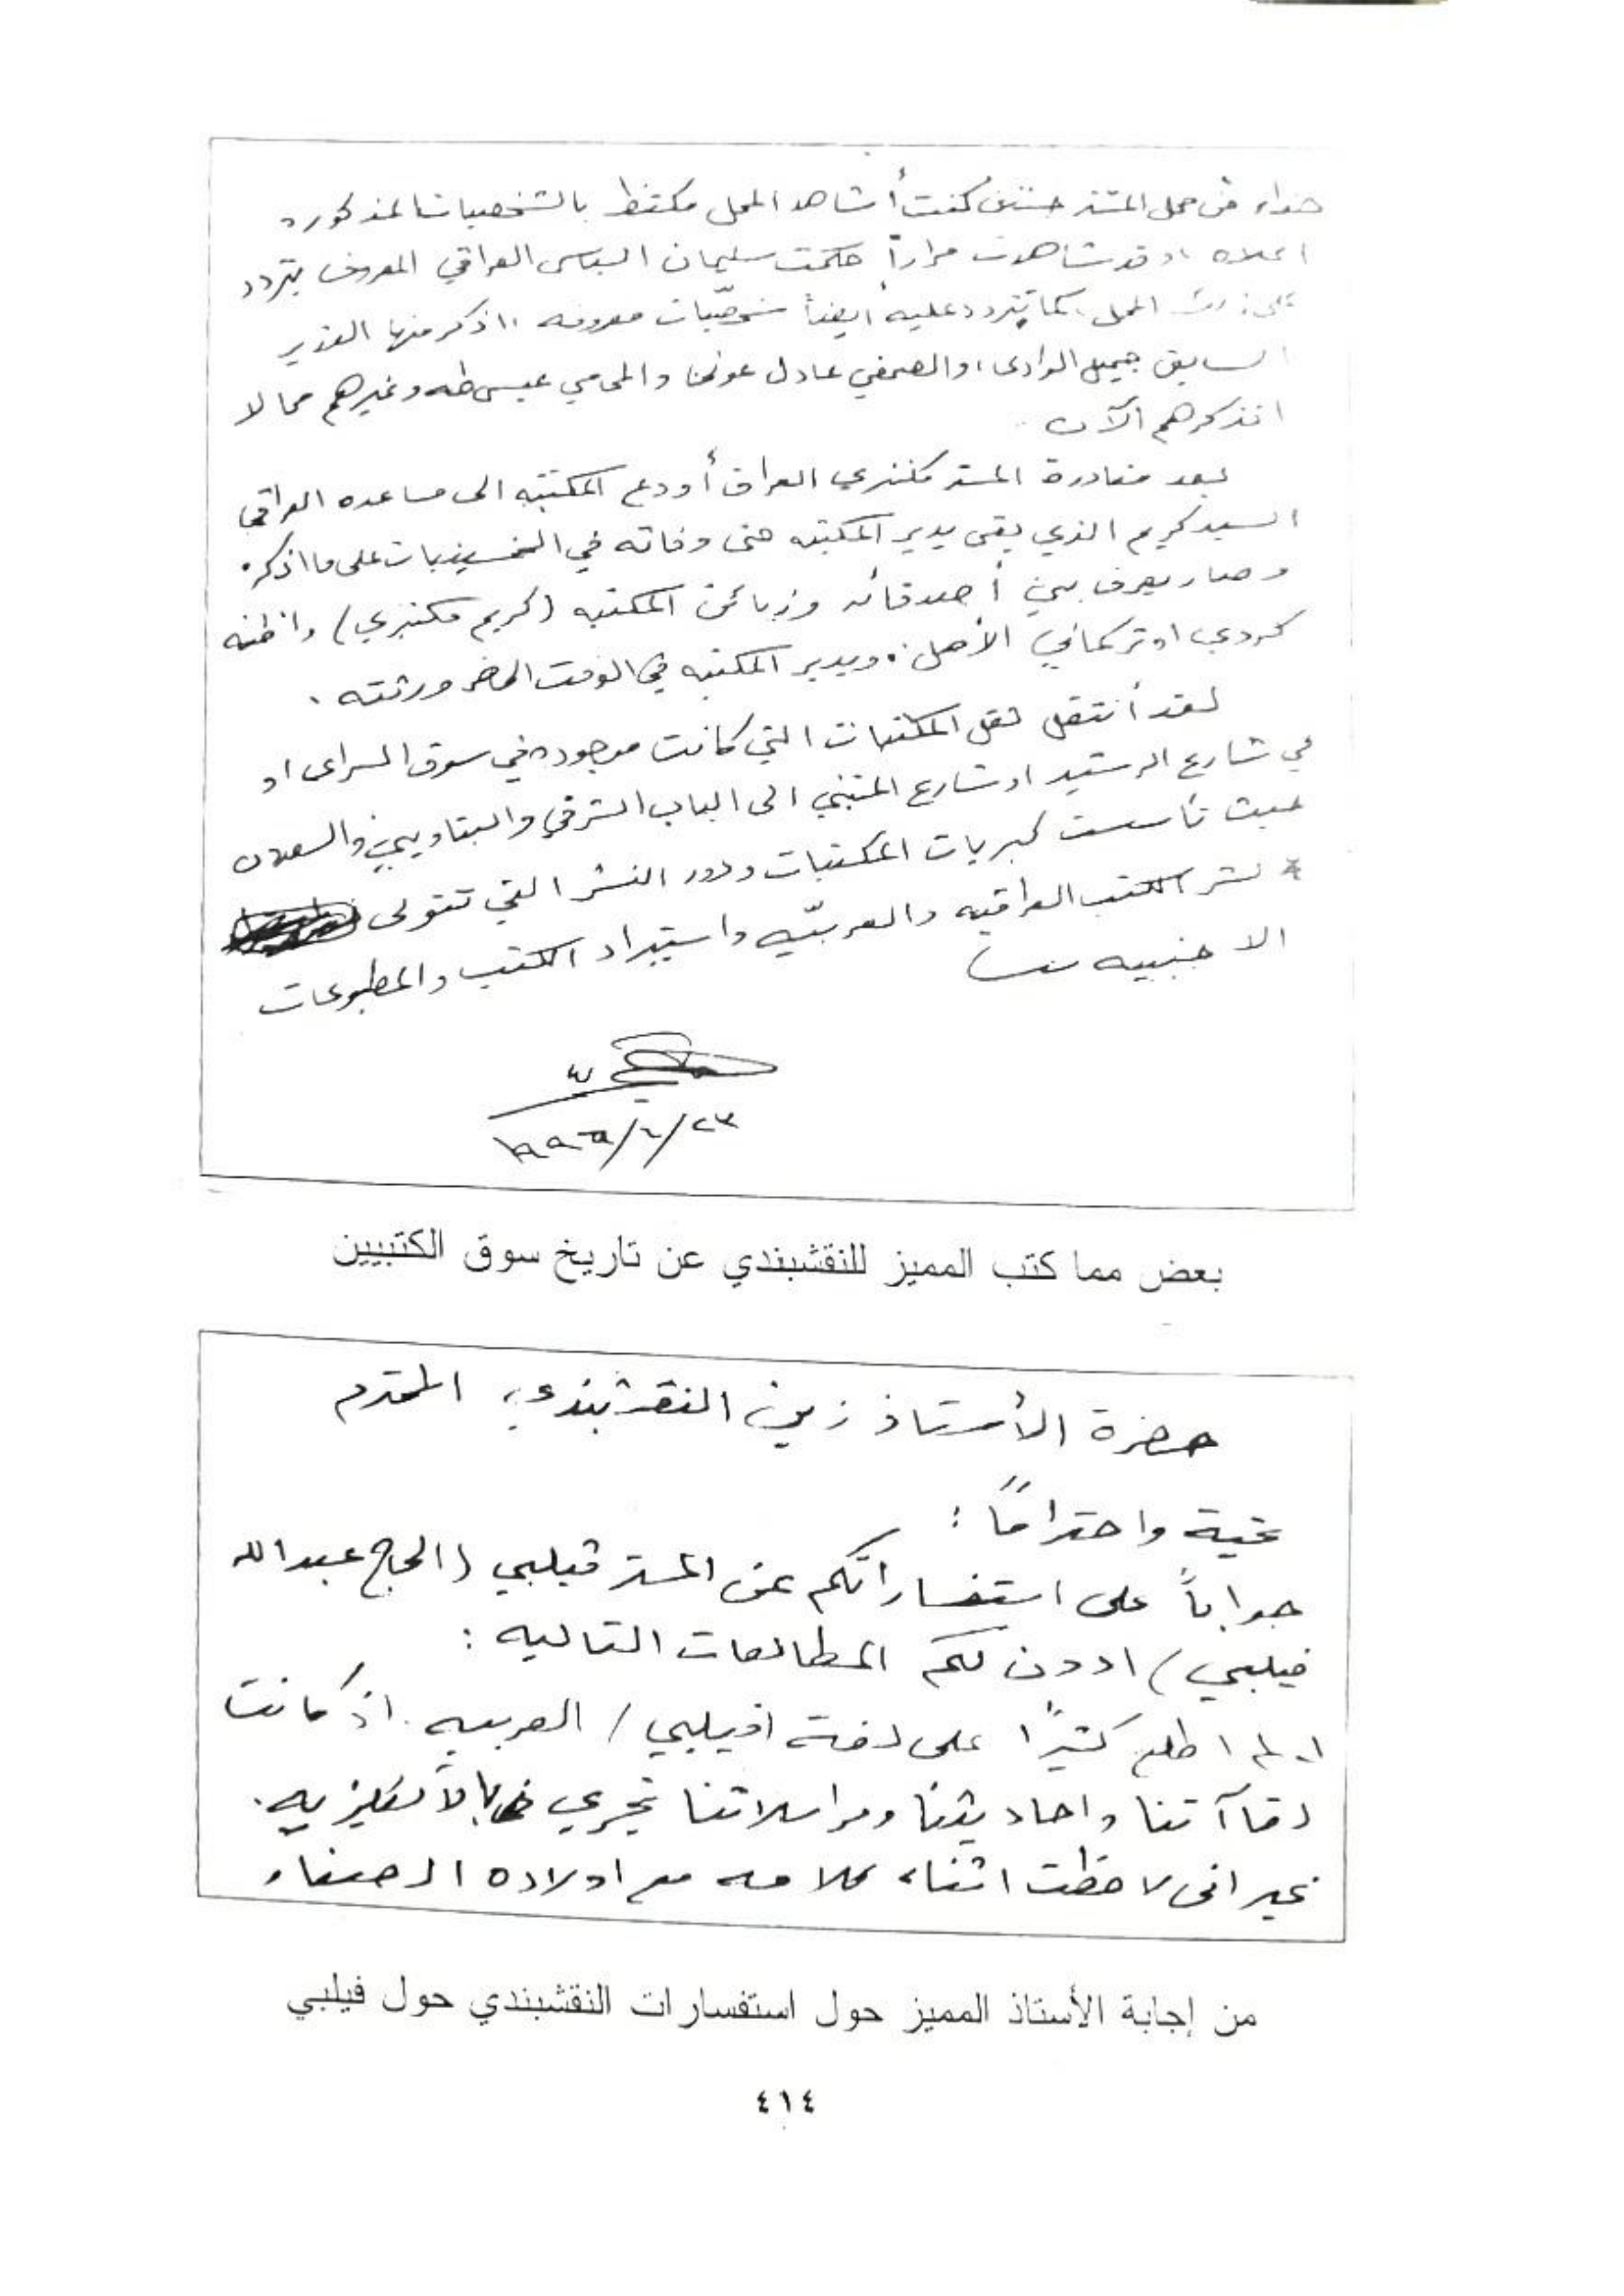 محل المستر كنت أشاهد المحل مكتظ بالشخصيات المذكوره
اعلاه، وقد شاهدت مراراً حكمت سليمان السياسي العراقي المعروف يتردد
المحل، كما يتردد عليه أيضاً شخصيّات معروفه، اذكر منها الوزير
السابق جميل الوادي، والصحفي عادل عوني والمحامي عيسى طه وغيرهم مما لا
اتذكرهم الآن.
بعد مغادرة المستر مكنزي العراق أودع المكتبه الى مساعده العراقي
السيد كريم الذي بقى يدير المكتبه حتى وفاته في الخمسينيات على ما اذكر.
وصار يعرف بين أصدقائه وزبائن المكتبه (كريم مكنزي) واظنه
كردي او تركماني الأصل. ويدير المكتبه في الوقت الحاضر ورثته.
لقد أنتقل ثقل المكتبات التي كانت موجوده في سوق السراى او
في شارع الرشيد او شارع المتنبي الى الباب الشرقي والبتاويين والسعدون
حيث تأسست كبريات المكتبات ودور النشر التي تتولى
* نشر الكتب العراقيه والعربيّه واستيراد الكتب والمطبوعات
الاجنبيه
بعض مما كتب المميز للنقشبندي عن تاريخ سوق الكتبيين
حضرة الأستاذ زين النقشبندي المحترم
تحية واحتراماً:
جواباً على استفساراتكم عن المستر فيلبي (الحاج عبدالله
فيلبي) ادون لكم المطالعات التاليه:
١. لم اطلع كثيرًا على لغة (فيلبي) العربيه. اذ كانت
لقاآتنا واحاديثنا ومراسلاتنا تجري بالأنكليزيه.
غير انى لاحظت اثناء كلامه مع اولاده الصغار
من إجابة الأستاذ المميز حول استفسارات النقشبندي حول فيلبي
٤١٤